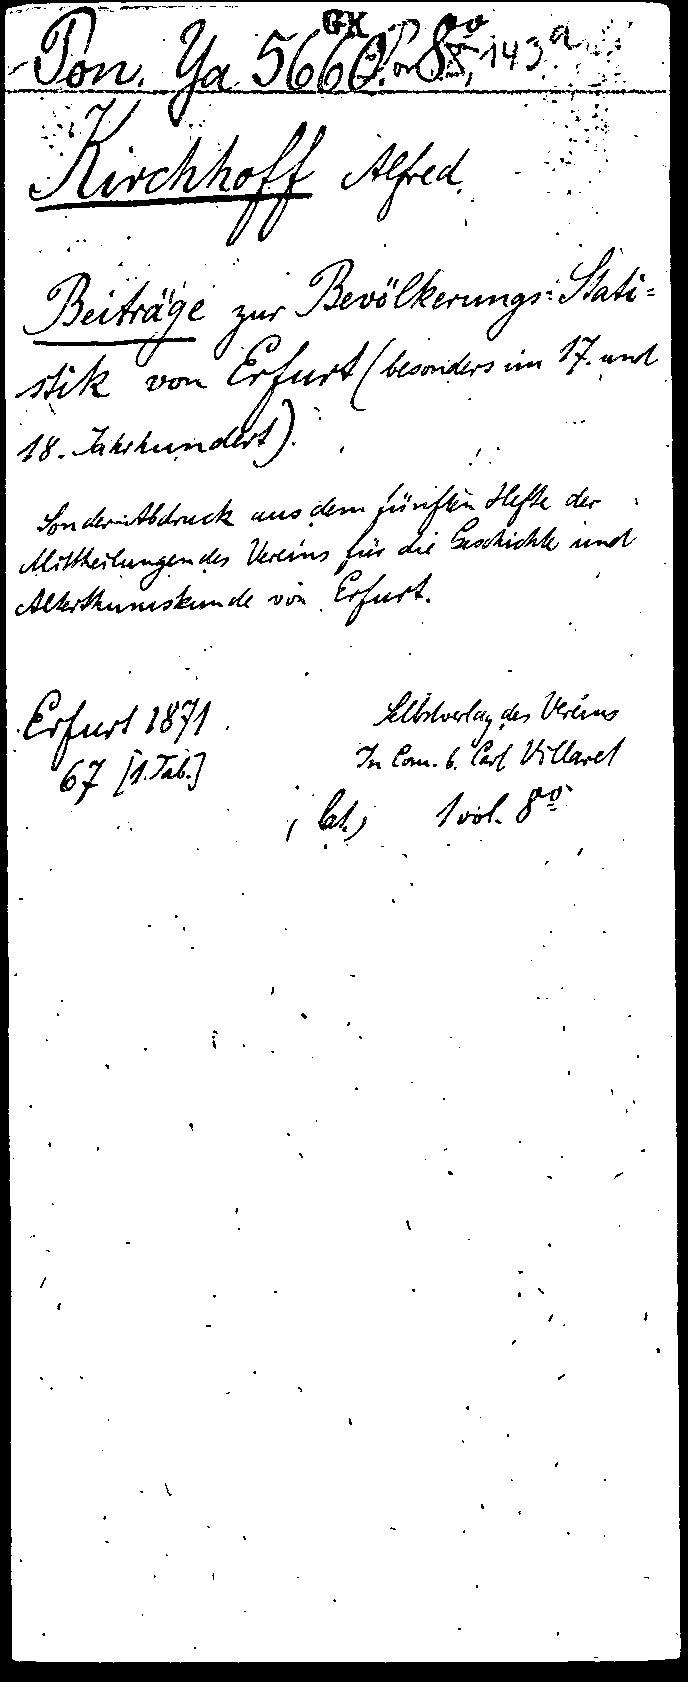 Pon. Ya 5660. Pon 8°, 143a
GK
Kirchhoff Alfred.
Beiträge zur Bevölkerungs=Stati=
stik von Erfurt (besonders im 17. und
18. Jahrhundert).
Sonder-Abdruck aus dem fünften Hefte der
Mittheilungen des Vereins für die Geschichte und
Alterthumskunde von Erfurt.
Erfurt 1871
Selbstverlag des Vereins
67 [1.Tab.]
In Com. b. Carl Villaret
1 vol. 8°